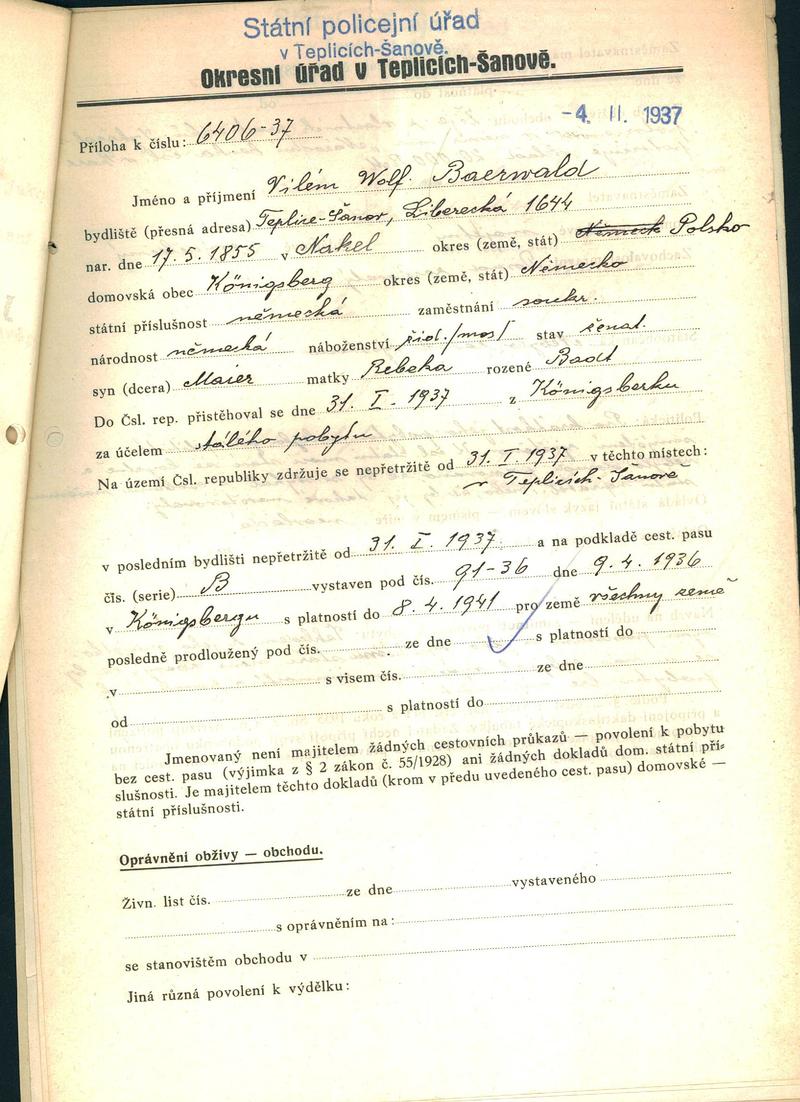 Státní policejní úřad
v Teplicích-Šanově.
Okresní úřad v Teplicích-Šanově.
-4. II. 1937
Příloha k číslu: 6406-37
Jméno a příjmení Vilém Wolf Baerwald
bydliště (přesná adresa) Teplice-Šanov, Liberecká 1644
nar. dne 17.5.1855 v Nakel okres (země, stát) Německ Polsko
domovská obec Königsberg okres (země, stát) Německo
státní příslušnost německá zaměstnání soukr.
národnost německá náboženství žid./mos/ stav ženat.
syn (dcera) Maier matky Rebeka rozené Badt
Do Čsl. rep. přistěhoval se dne 31. I. 1937 z Königsberku
za účelem stálého pobytu
Na území Čsl. republiky zdržuje se nepřetržitě od 31. I. 1937 v těchto místech:
v Teplicích-Šanově
v posledním bydlišti nepřetržitě od 31. I. 1937 a na podkladě cest. pasu
čís. (serie) B vystaven pod čís. 91-36 dne 9.4.1936
v Königsbergu s platností do 8.4.1941 pro země všechny země
posledně prodloužený pod čís. ze dne s platností do
v s visem čís. ze dne
od s platností do
Jmenovaný není majitelem žádných cestovních průkazů — povolení k pobytu
bez cest. pasu (výjimka z § 2 zákon č. 55/1928) ani žádných dokladů dom. státní pří-
slušnosti. Je majitelem těchto dokladů (krom v předu uvedeného cest. pasu) domovské —
státní příslušnosti.
Oprávnění obživy — obchodu.
Živn. list čís. ze dne vystaveného
s oprávněním na:
se stanovištěm obchodu v
Jiná různá povolení k výdělku: